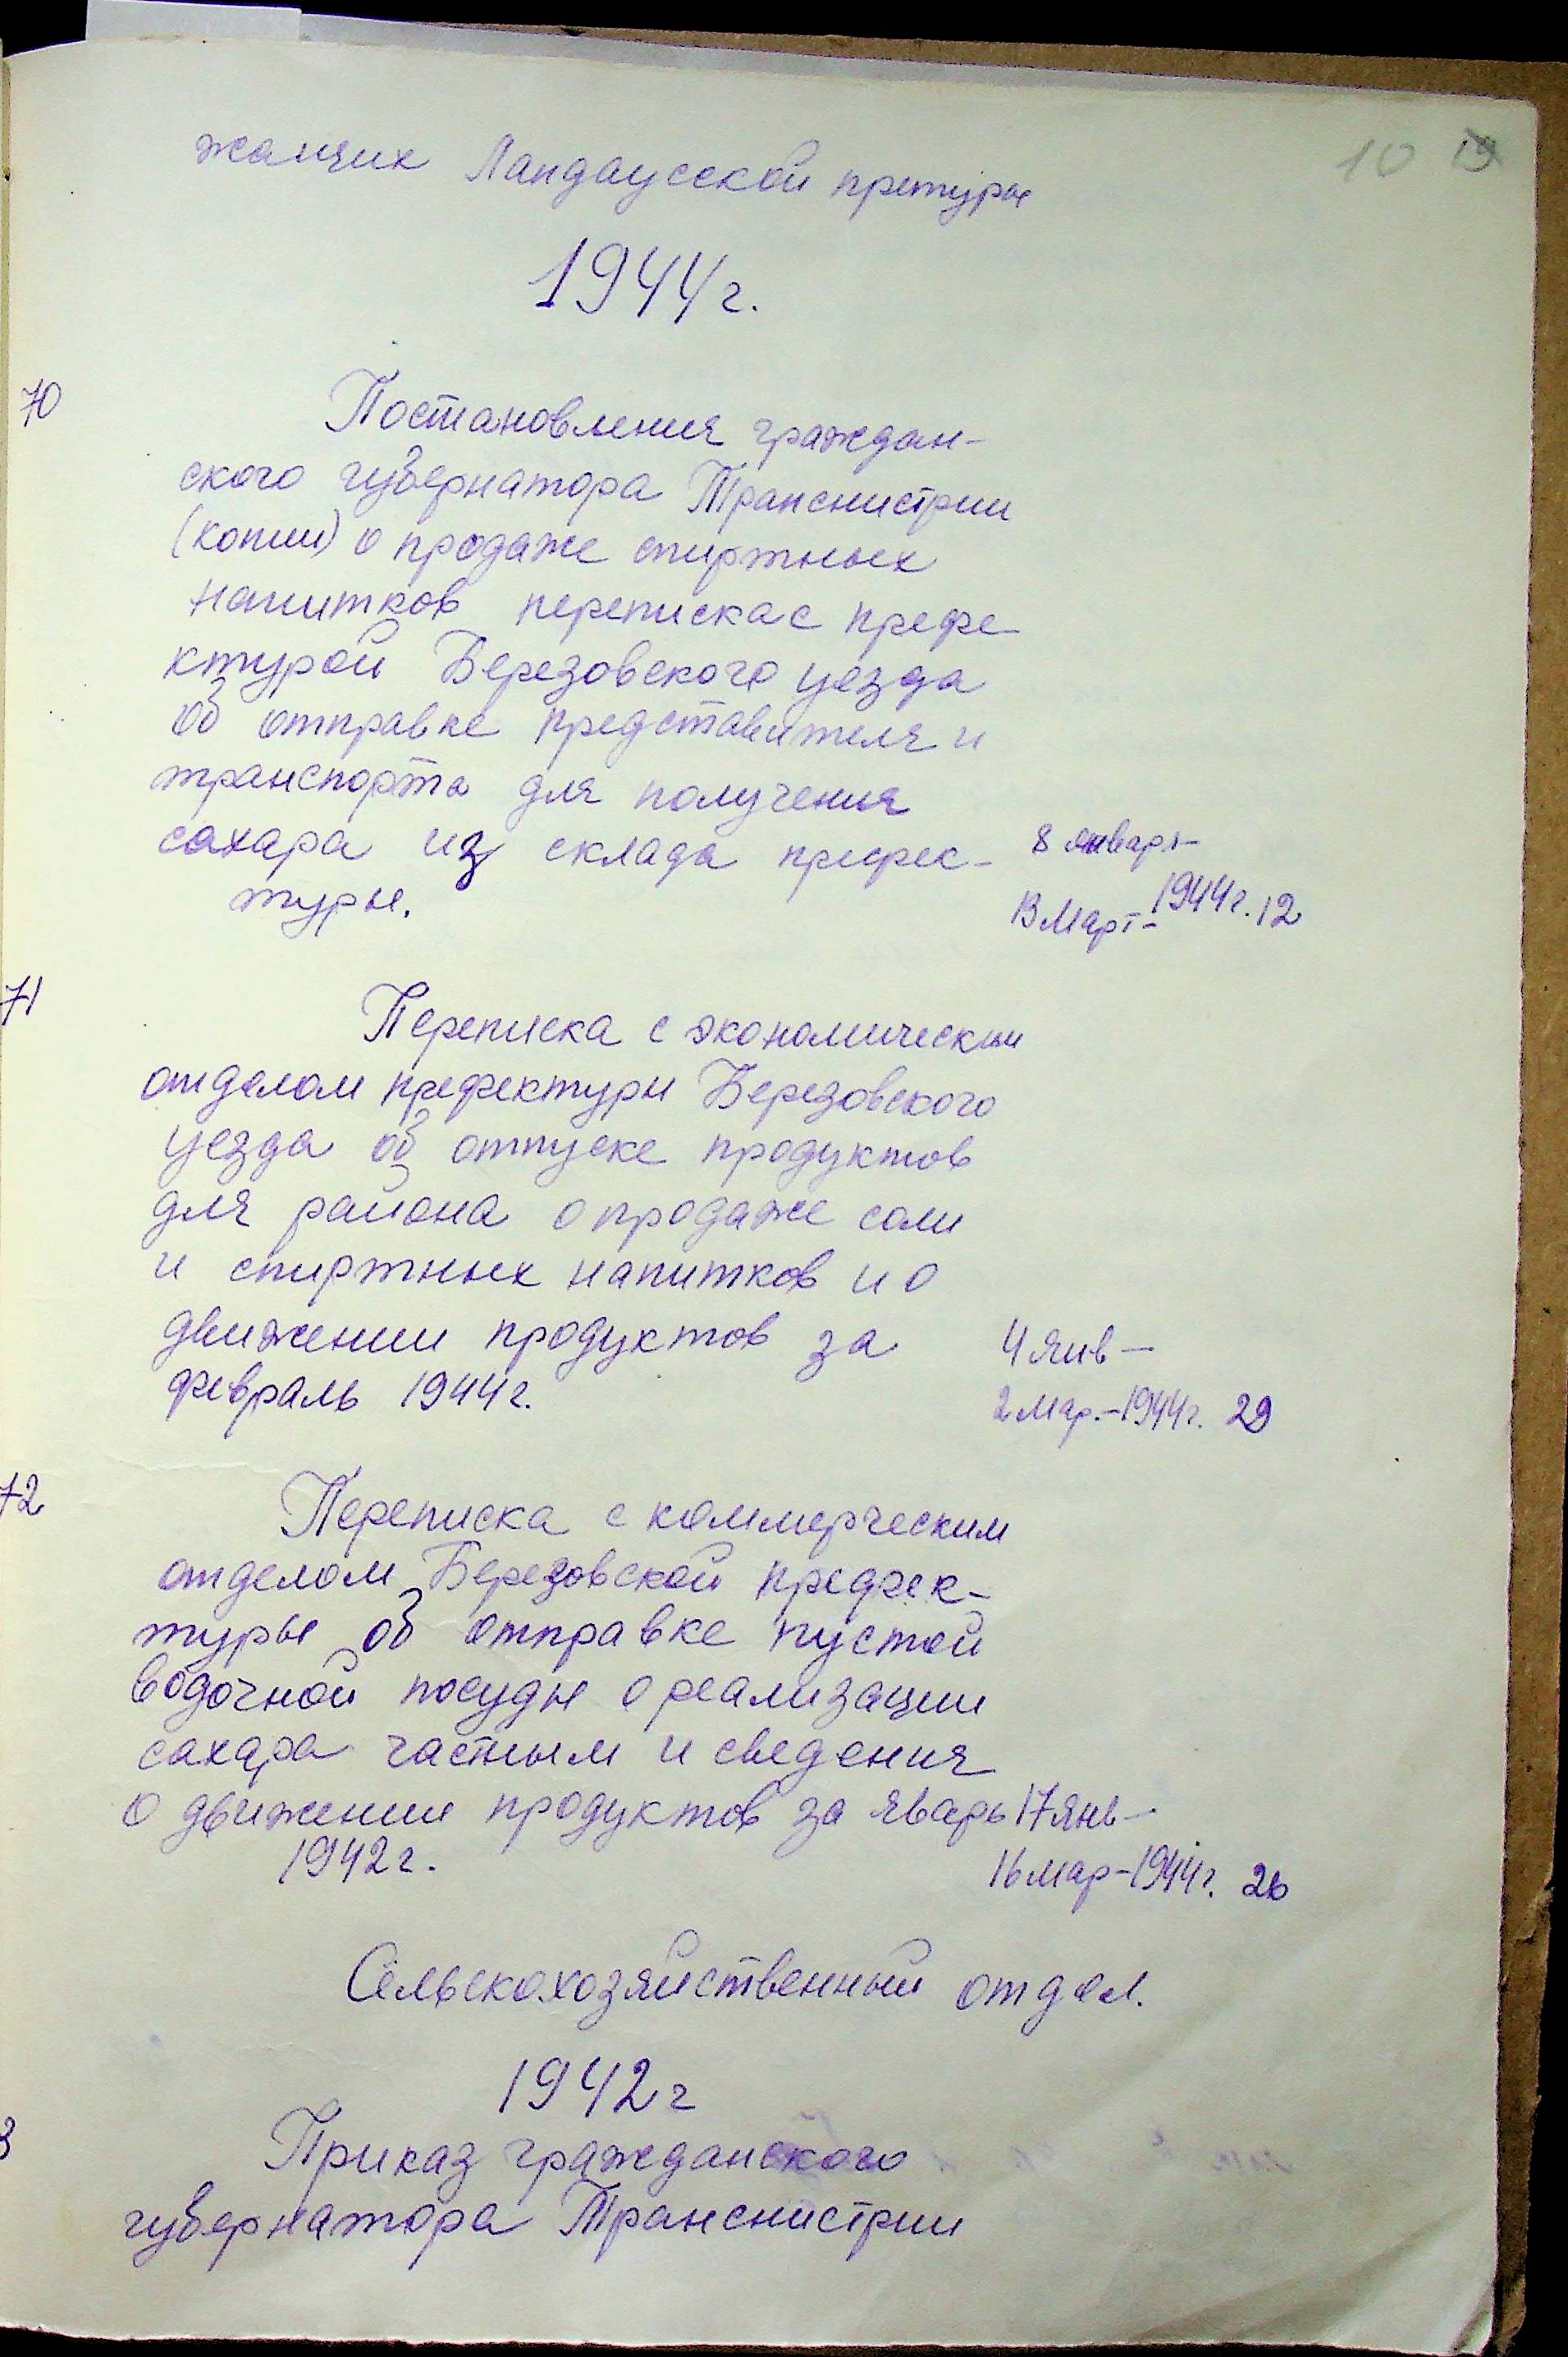 10 19
жащих Ландаусской претуры
1944г.
70
Постановления граждан-
ского губернатора Транснистрии
(копии) о продаже спиртных
напитков переписка с префе-
ктурой Березовского уезда
об отправке представителя и
транспорта для получения
сахара из склада префек- 8 январ-
туры. 13 Март- 1944г. 12
71
Переписка с экономическим
отделом префектуры Березовского
уезда об отпуске продуктов
для района о продаже соли
и спиртных напитков и о
движении продуктов за 4 янв-
февраль 1944г. 2 мар.-1944г. 29
72
Переписка с коммерческим
отделом Березовской префек-
туры об отправке пустой
водочной посуды о реализации
сахара частным и сведения
о движении продуктов за яварь 17 янв-
1942г. 16 мар-1944г. 26
Сельскохозяйственный отдел.
1942г
3
Приказ гражданского
губернатора Транснистрии